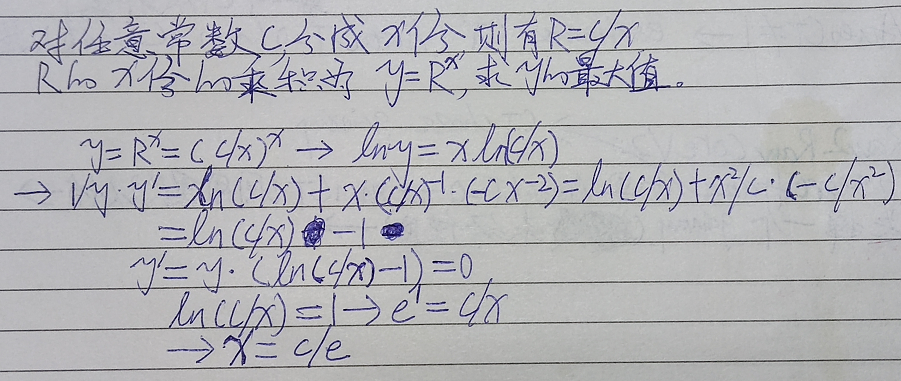 对任意常数C,分成x份 则有R=C/x
R的x份的乘积为 y=Rˣ,求y的最大值。
y=Rˣ=(C/x)ˣ → lny=xln(C/x)
→ 1/y·y'=xln(C/x)+x·(C/x)⁻¹·(-Cx⁻²)=ln(C/x)+x²/C·(-C/x²)
=ln(C/x)-1
y'=y·(ln(C/x)-1)=0
ln(C/x)=1→e¹=C/x
→x=C/e